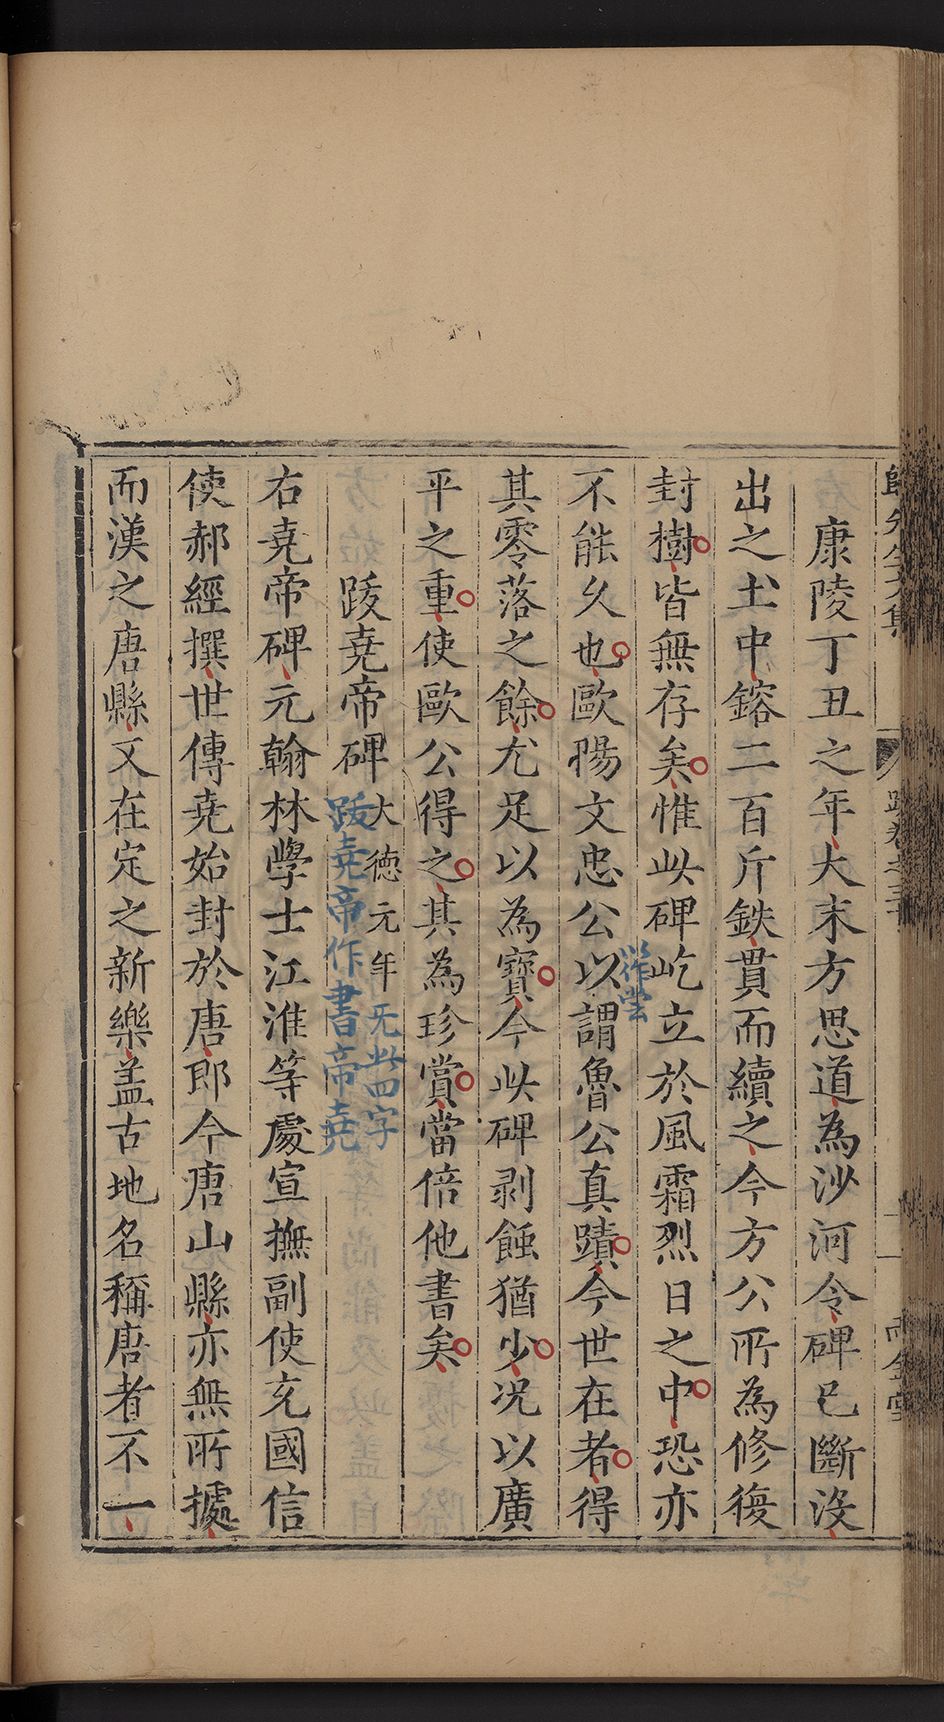 康陵丁丑之年大末方思道為沙河令碑已斷沒
出之土中鎔二百斤鉄貫而續之今方公所為修復
封樹皆無存矣惟此碑屹立於風霜烈日之中恐亦
不能久也歐陽文忠公以謂魯公真蹟今世在者得
其零落之餘尤足以為寶今此碑剥蝕猶少况以廣
平之重使歐公得之其為珍賞當倍他書矣
跋堯帝碑大德元年
无此四字
跋堯帝作書帝堯
右堯帝碑元翰林學士江淮等處宣撫副使充國信
使郝經撰世傳堯始封於唐郎今唐山縣亦無所據
而漢之唐縣又在定之新樂盖古地名稱唐者不一